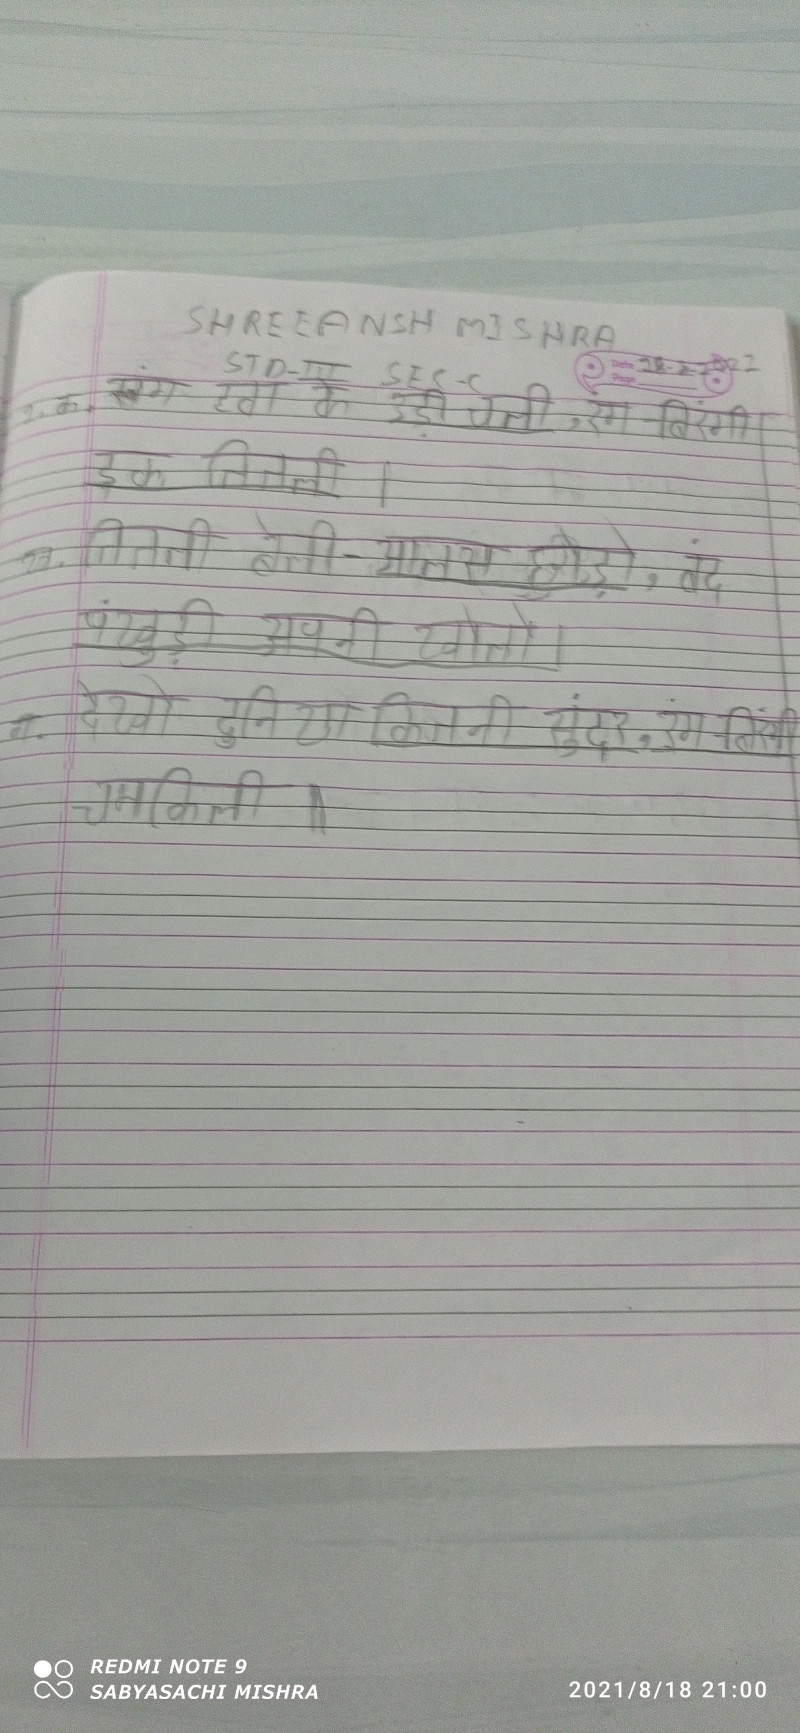 SHREEANSH MISHRA
STD-III SES-C
Date
Page
2. क. संग हवा के उड़ी चली, रंग-बिरंगी
इक तितली।
तितली बोली-आलस छोड़ो, बंद
पंखुड़ी अपनी खोलो।
ग. देखो दुनिया कितनी सुंदर, रंग-बिरंगी
चमकिली॥
REDMI NOTE 9
SABYASACHI MISHRA
2021/8/18 21:00